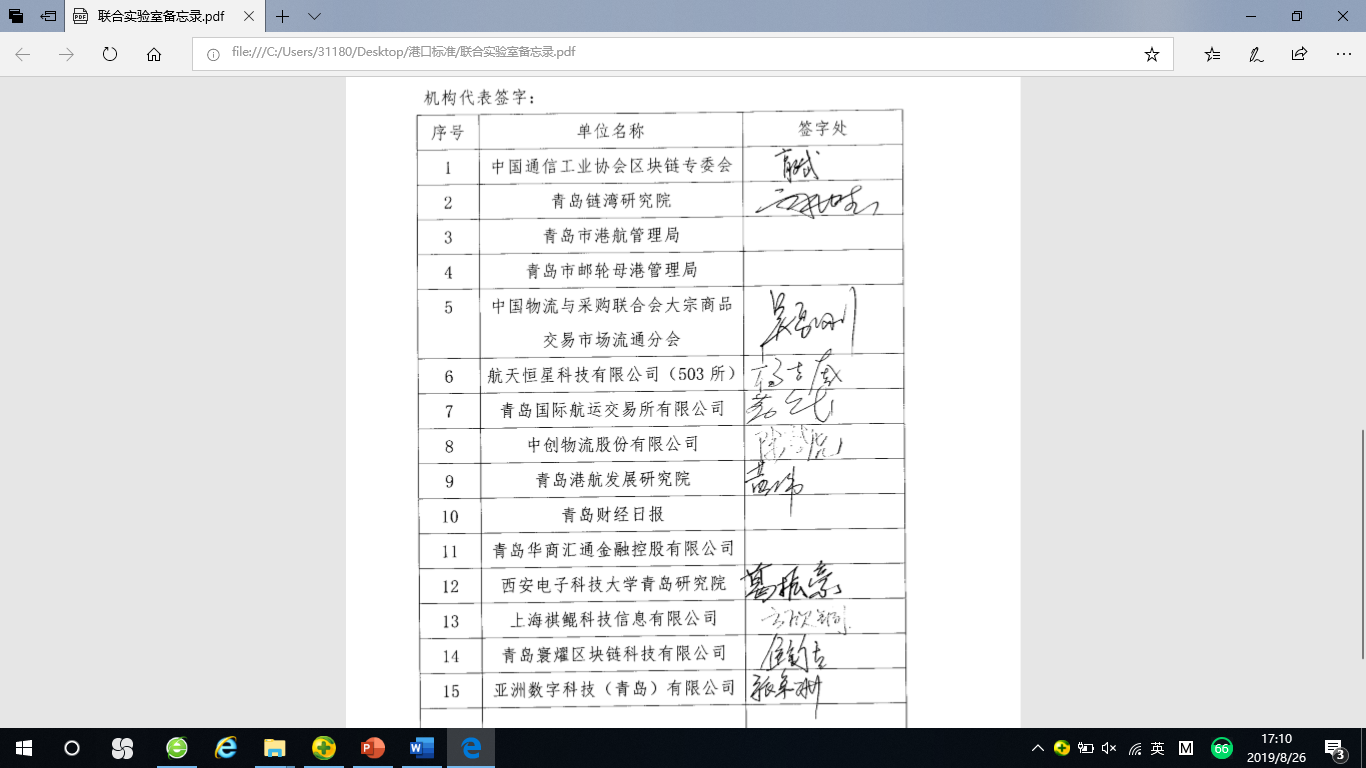 联合实验室备忘录.pdf
file:///C:/Users/31180/Desktop/港口标准/联合实验室备忘录.pdf
机构代表签字：
序号 单位名称 签字处
1 中国通信工业协会区块链专委会
2 青岛链湾研究院
3 青岛市港航管理局
4 青岛市邮轮母港管理局
5 中国物流与采购联合会大宗商品
交易市场流通分会
6 航天恒星科技有限公司（503 所）
7 青岛国际航运交易所有限公司
8 中创物流股份有限公司
9 青岛港航发展研究院 黄伟
10 青岛财经日报
11 青岛华商汇通金融控股有限公司
12 西安电子科技大学青岛研究院 葛振豪
13 上海祺鲲科技信息有限公司
14 青岛寰燿区块链科技有限公司
15 亚洲数字科技（青岛）有限公司
英 M 66 17:10
2019/8/26 3